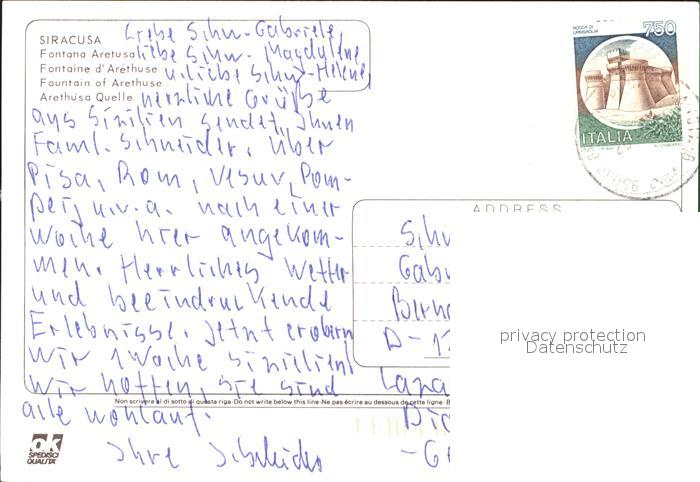 SIRACUSA
Fontana Aretusa
Fontaine d'Aréthuse
Fountain of Arethuse
Arethusa Quelle
Liebe Schw. Gabriele,
liebe Schw. Magdalene
u. liebe Schw. Helene,
herzliche Grüße
aus Sizilien sendet Ihnen
Faml. Schneider. Über
Pisa, Rom, Vesuv, Pom-
peij u.v.a. nach einer
Woche hier angekom-
men. Herrliches Wetter
und beeindruckende
Erlebnisse. Jetzt erobern
wir 1 Woche Sizilien!
Wir hoffen, Sie sind
alle wohlauf.
Ihre
ROCCA DI
URBISAGLIA
750
ITALIA
ADDRESS
Schw
Gab
Bern
D-1
privacy protection
Datenschutz
Non scrivere al di sotto di questa riga-Do not write below this line-Ne pas écrire au dessous de cette ligne-B
ak
SPEDISCI
QUALITA'